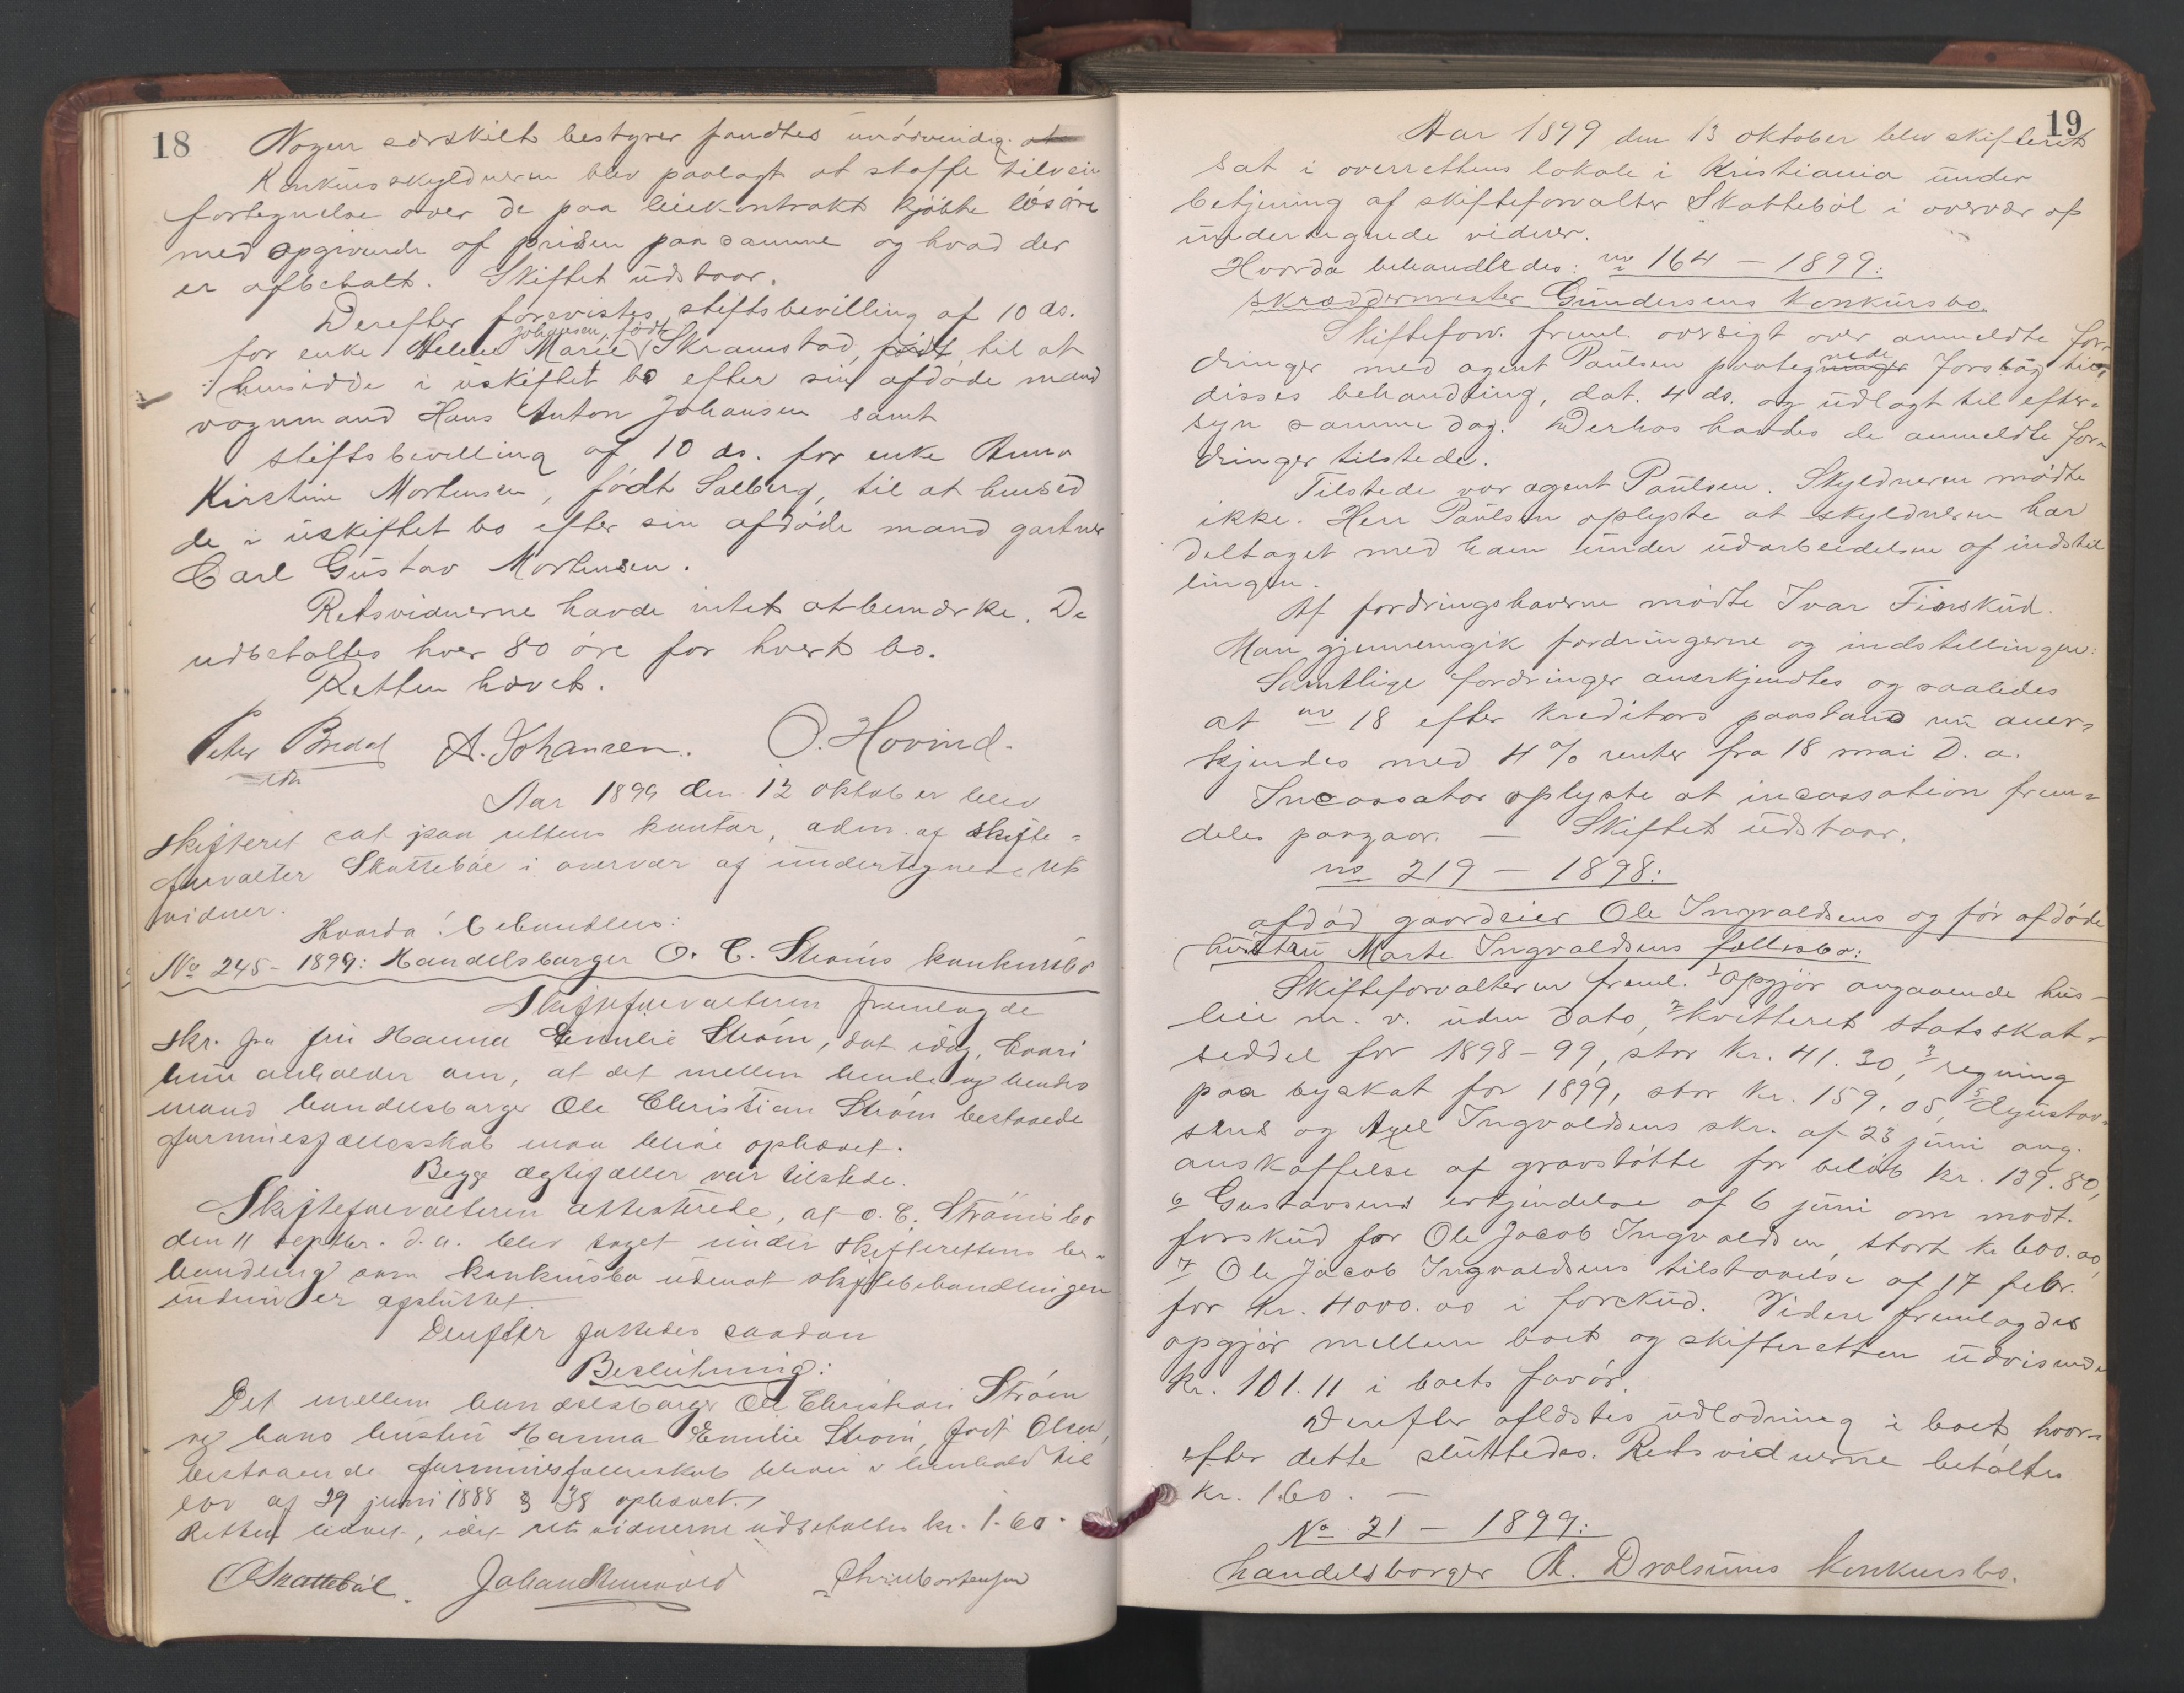 18
Nogen særskilt bestyrer fandtes unødvendig. at
Konkursskyldneren blev paalagt at skaffe tilveie
fortegnelse over de paa leiekontrakt kjøbte løsøre
med opgivende af prisen paa samme og hvad der
er afbetalt. Skiftet udstaar.
Derefter forevistes stiftsbevilling af 10 ds.
for enke Helene Marie Johansen, født Skramstad, født til at
hensidde i uskiftet bo efter sin afdøde mand
vognmand Hans Anton Johansen samt
stiftsbevilling af 10 ds. for enke Anna
Kirstine Mortensen, født Solberg, til at hensid
de i uskiftet bo efter sin afdøde mand gartner
Carl Gustav Mortensen.
Retsvidnerne havde intet at bemærke. De
udbetaltes hver 80 øre for hvert bo.
Retten hævet.
Peter Bredal A. Johansen. O. Hovind.
Aar 1899 den 12 oktober blev
skifteret sat paa rettens kontor, adm. af skifte-
forvalter Skattebøl i overvær af undertegnede rets
vidner.
Hvorda behandles:
No 245 - 1899: Handelsborger O. C. Strøms konkursbo
Skifteforvalteren fremlagde
skr. fra fru Hanna Emilie Strøm, dat idag, hvori
hun anholder om, at det mellem hende og hendes
mand handelsborger Ole Christian Strøm bestaaede
formuesfællesskab maa blive ophævet.
Begge ægtefæller var tilstede.
Skifteforvalteren attesterede, at O. C. Strøms bo
den 11 septbr. d. a. blev taget under skifterettens be-
handling som konkursbo udenat skiftebehandlingen
endnu er afsluttet.
Derefter fattedes saadan
Beslutning:
Det mellem handelsborger Ole Christian Strøm
og hans hustru Hanna Emilie Strøm, født Olsen,
bestaaende formuesfællesskab bliver i henhold til
lov af 29 juni 1888 § 38 ophævet.
Retten hævet, idet retsvidnerne udbetaltes kr. 1.60.
O Skattebøl. Johan
19
Aar 1899 den 13 oktober blev skifteret
sat i overrettens lokale i Kristiania under
betjening af skifteforvalter Skattebøl i overvær af
undertegnede vidner.
Hvorda behandledes: no 164 — 1899:
skræddermester Gundersens konkursbo.
Skifteforv. freml. oversigt over anmeldte for-
dringer med agent Paulsen paategnede forslag til
disses behandling, dat. 4 ds. og udlagt til efter-
syn samme dag. Derhos havdes de anmeldte for-
dringer tilstede.
Tilstede var agent Paulsen. Skyldneren mødte
ikke. Herr Paulsen oplyste at skyldneren har
deltaget med ham under udarbeidelsen af indstil
lingen.
Af fordringshaverne mødte Ivar Finskud.
Man gjennemgik fordringerne og indstillingen:
Samtlige fordringer anerkjendtes og saaledes
at no 18 efter kreditors paastand nu aner-
kjendes med 4 % renter fra 18 mai d. a.
Incassator oplyste at incassation frem-
deles paagaar. — Skiftet udstaar.
no 219 — 1898:
afdød gaardeier Ole Ingvaldsens og før afdøde
hustru Marte Ingvaldsens fællesbo:
Skifteforvalteren freml. 1 opgjør angaaende hus-
leie m. v. uden dato, 2 kvitteret statsskat-
seddel for 1898-99, stor kr. 41.30, 3 regning
paa byskat for 1899, stor kr. 159.05, 5 Gustav-
sens og Axel Ingvaldsens skr. af 23 juni ang.
anskaffelse af gravstøtte for beløb kr. 139.80,
6 Gustavsens erkjendelse af 6 juni om modt.
forskud for Ole Jacob Ingvaldsen, stort kr 600.00,
7 Ole Jacob Ingvaldsens tilstaaelse af 17 febr.
for kr. 4000.00 i forskud. Videre fremlagdes
opgjør mellem boet og skifteretten udvisende
kr. 101.11 i boets favør.
Derefter afldstes udlodning i boet, hvor-
efter dette sluttedes. Retsvidnerne betaltes
kr. 1.60. —
No 21 — 1899:
handelsborger A. Drolsums konkursbo.